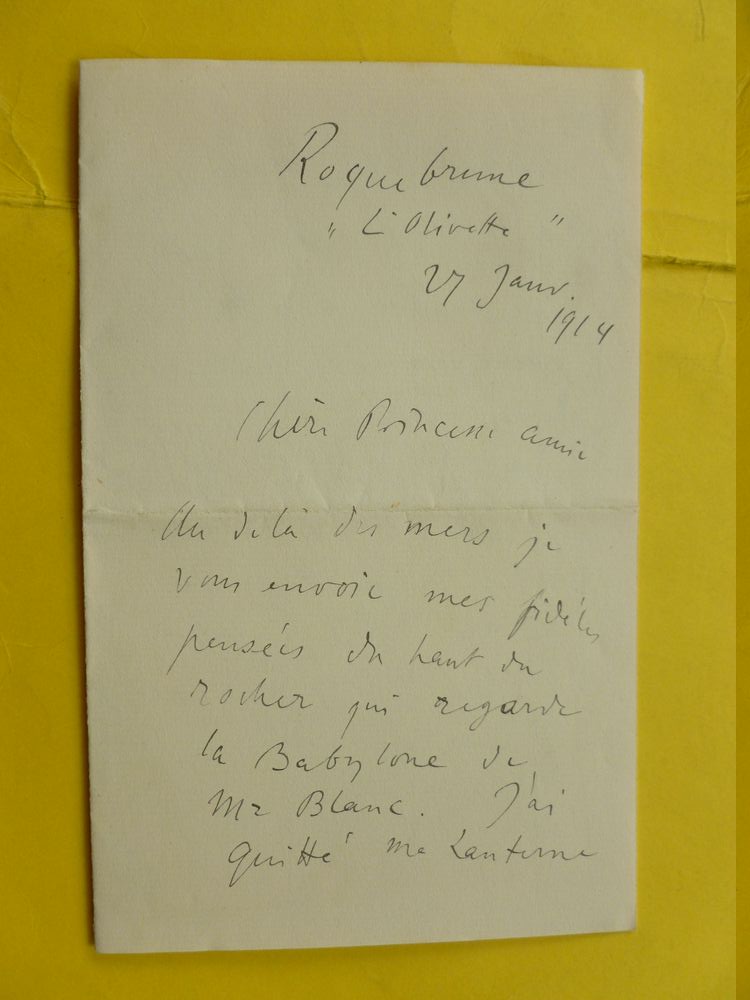 Roquebrune
"L'Olivette"
27 Janv.
1914
Chère Princesse amie
Au delà des mers je
vous envoie mes fidèles
pensées du haut du
rocher qui regarde
la Babylone de
Mr Blanc. J'ai
quitté ma Lanterne